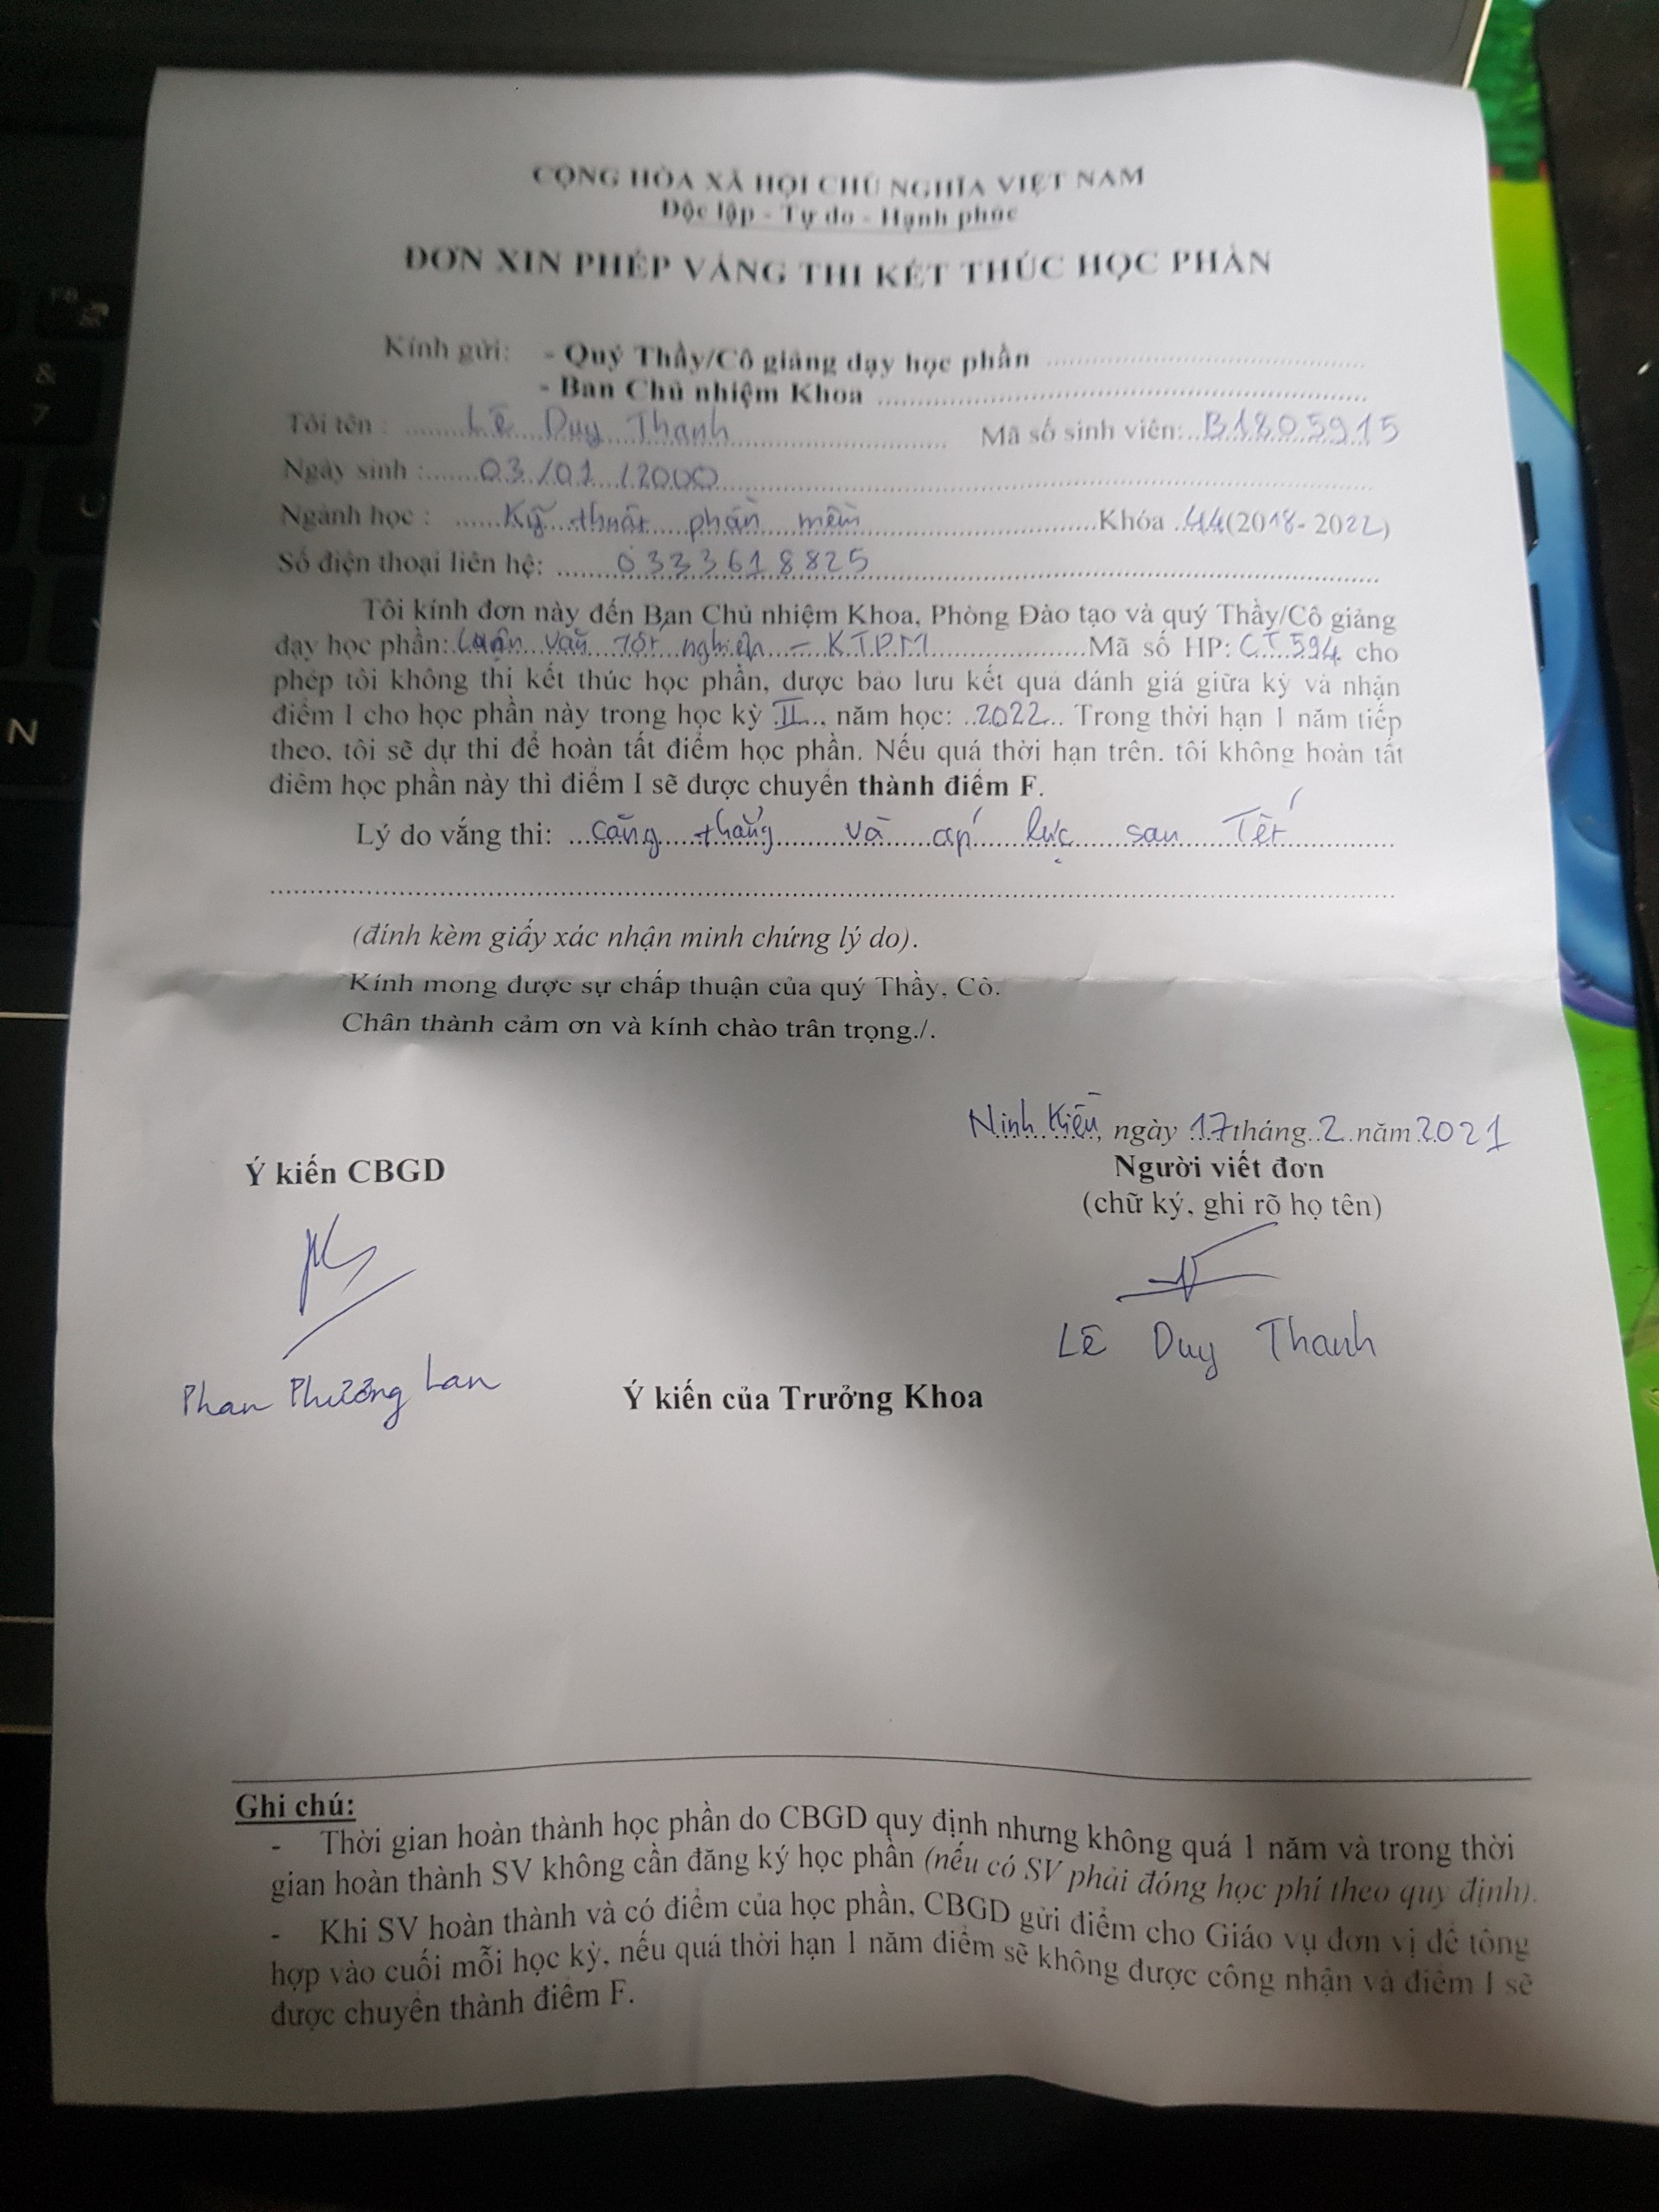 CỘNG HÒA XÃ HỘI CHỦ NGHĨA VIỆT NAM
Độc lập - Tự do - Hạnh phúc
ĐƠN XIN PHÉP VẮNG THI KẾT THÚC HỌC PHẦN
Kính gửi: - Quý Thầy/Cô giảng dạy học phần ..............................
- Ban Chủ nhiệm Khoa ..............................
Tôi tên : Lê Duy Thanh Mã số sinh viên: B1805915
Ngày sinh : 03/01/2000
Ngành học : Kỹ thuật phần mềm Khóa 44 (2018- 2022)
Số điện thoại liên hệ: 0333618825
Tôi kính đơn này đến Ban Chủ nhiệm Khoa, Phòng Đào tạo và quý Thầy/Cô giảng
dạy học phần: Luận văn tốt nghiệp - KTPM Mã số HP: CT594 cho
phép tôi không thi kết thúc học phần, được bảo lưu kết quả đánh giá giữa kỳ và nhận
điểm I cho học phần này trong học kỳ II, năm học: 2022. Trong thời hạn 1 năm tiếp
theo, tôi sẽ dự thi để hoàn tất điểm học phần. Nếu quá thời hạn trên, tôi không hoàn tất
điểm học phần này thì điểm I sẽ được chuyển thành điểm F.
Lý do vắng thi: căng thẳng và áp lực sau Tết
(đính kèm giấy xác nhận minh chứng lý do).
Kính mong được sự chấp thuận của quý Thầy, Cô.
Chân thành cảm ơn và kính chào trân trọng./.
Ninh Kiều, ngày 17 tháng 2 năm 2021
Ý kiến CBGD
Người viết đơn
(chữ ký, ghi rõ họ tên)
Lê Duy Thanh
Phan Phương Lan
Ý kiến của Trưởng Khoa
Ghi chú:
- Thời gian hoàn thành học phần do CBGD quy định nhưng không quá 1 năm và trong thời
gian hoàn thành SV không cần đăng ký học phần (nếu có SV phải đóng học phí theo quy định).
- Khi SV hoàn thành và có điểm của học phần, CBGD gửi điểm cho Giáo vụ đơn vị để tổng
hợp vào cuối mỗi học kỳ, nếu quá thời hạn 1 năm điểm sẽ không được công nhận và điểm I sẽ
được chuyển thành điểm F.